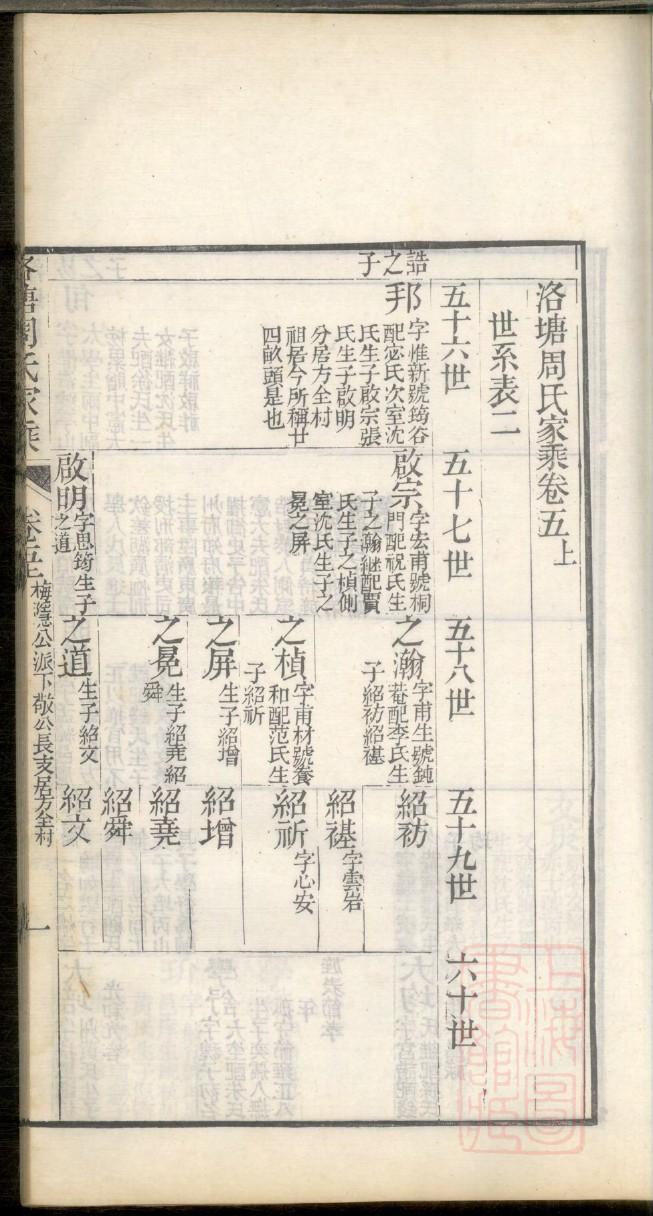 洛塘周氏家乘卷五上
世系表二
五十六世
五十七世
五十八世
五十九世
六十世
誥之子
邦
字惟新號筠谷
配宓氏次室沈
氏生子啟宗張
氏生子啟明
分居方全村
祖居今所稱廿
四畝頭是也
啟宗
字宏甫號桐
門配祝氏生
子之瀚繼配賈
氏生子之楨側
室沈氏生子之
晃之屏
之瀚
字甫生號鈍
菴配李氏生
子紹礽紹禥
紹礽
紹禥
字雲岩
之楨
字甫材號養
和配范氏生
子紹祈
紹祈
字心安
之屏
生子紹增
紹增
之晃
生子紹堯紹
舜
紹堯
紹舜
啟明
字思筠生子
之道
之道
生子紹文
紹文
洛塘周氏家乘
卷五上
梅隱公派下敬公長支居方全村
一
上海圖書館藏